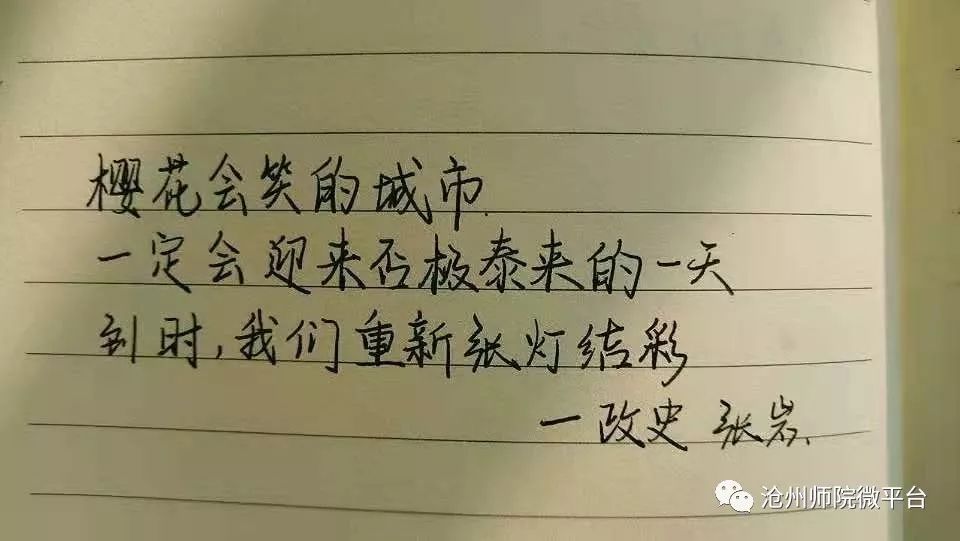 樱花会笑的城市.
一定会迎来否极泰来的一天
到时,我们重新张灯结彩
一政史 张岩.
沧州师院微平台